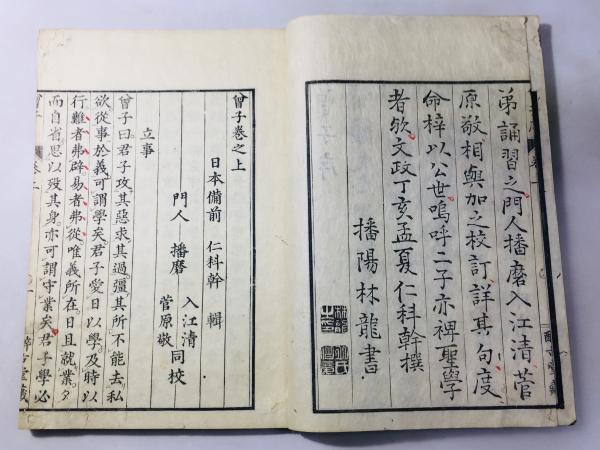 弟誦習之門人播磨入江清菅
原敬相與加之校訂詳其句度
命梓以公世嗚呼二子亦裨聖學
者欤文政丁亥孟夏仁科幹撰
播陽林龍書
曾子巻之上
日本備前 仁科幹 輯
門人 播磨 入江清
菅原敬 同校
立事
曾子曰君子攻其惡求其過彊其所不能去私
欲從事於義可謂學矣君子愛日以學及時以
行難者弗辟易者弗從唯義所在日且就業夕
而自省思以殁其身亦可謂守業矣君子學必